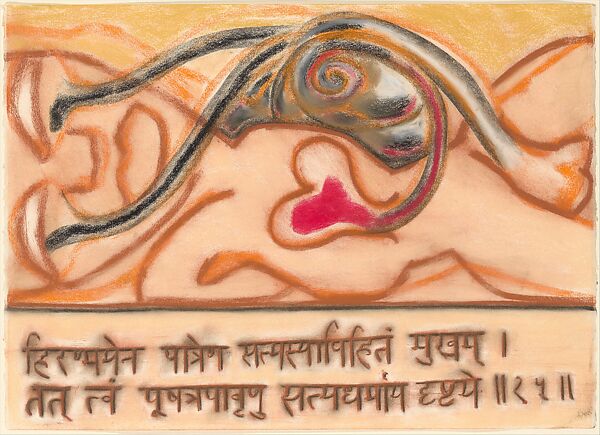 हिरण्मयेन पात्रेण सत्यस्यापिहितं मुखम् ।
तत् त्वं पूषन्नपावृणु सत्यधर्माय दृष्टये ॥१५॥